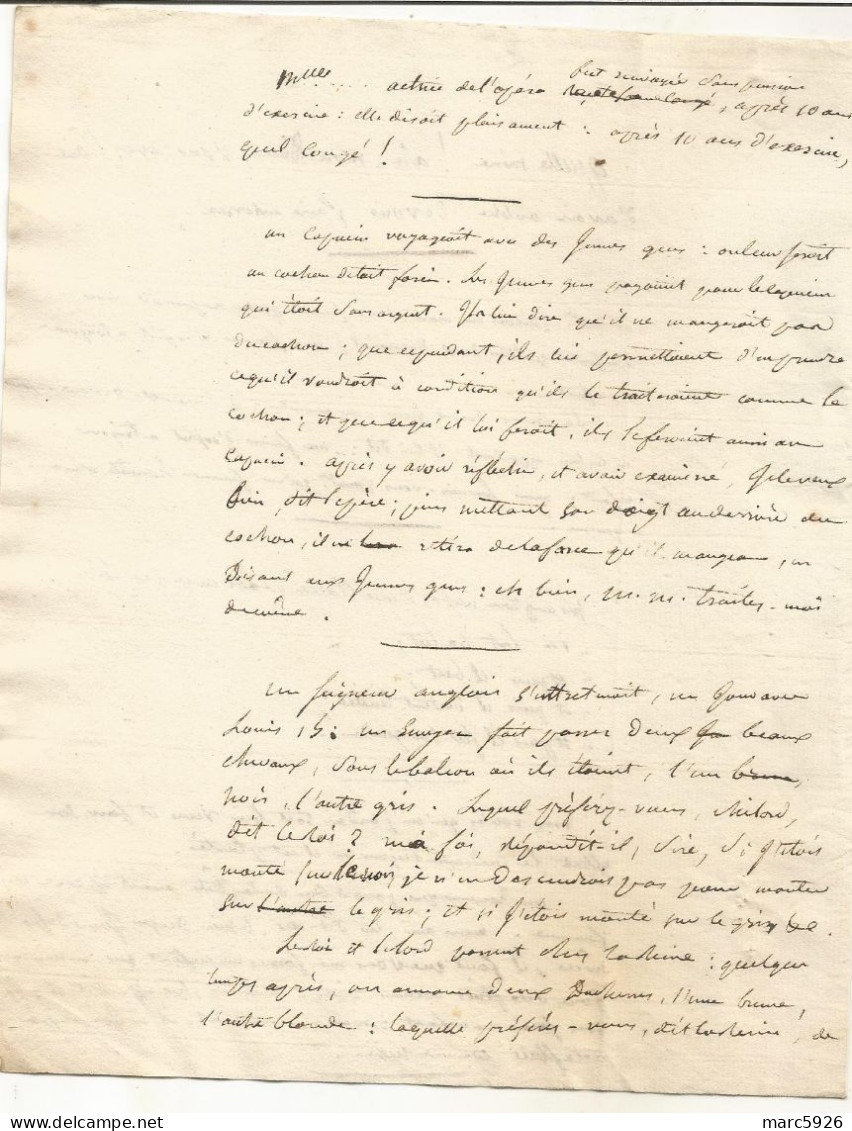 fut renvoyée sans pension
Mlle .... actrice de l'opéra, après 10 ans
d'exercice : elle disoit plaisament : après 10 ans d'exercice,
quel congé !
un capucin voyageoit avec des jeunes gens : on leur servit
un cochon de lait farci. Les jeunes gens payoient pour le capucin
qui étoit sans argent. On lui dire qu'il ne mangeroit pas
du cochon ; que cependant, ils lui permettoient d'en prendre
ce qu'il voudroit à condition qu'ils le traiteroient comme le
cochon ; et que ce qu'il lui feroit, ils le feroient aussi au
capucin. après y avoir réfléchi, et avoir examiné, je le veux
bien, dit le père ; puis mettant son doigt au derrière du
cochon, il retira de la farce qu'il mangea, en
disant aux jeunes gens : eh bien, m. m. traites-moi
de même.
un seigneur anglois s'entretenoit, un jour avec
Louis 15 : un Ecuyer fait passer deux beaux
chevaux, sous le balcon où ils étoient, l'un
noir, l'autre gris. Lequel préférez-vous, milord,
dit le Roi ? ma foi, répondit-il, Sire, si j'étois
monté sur le noir, je n'en descendrois pas pour monter
sur l'autre le gris ; et si j'étois monté sur le gris &c.
Le Roi et le lord passent chez la Reine : quelque
temps après, on annonce deux Duchesses, l'une brune,
l'autre blonde : laquelle préférés-vous, dit la Reine, de
marc5926